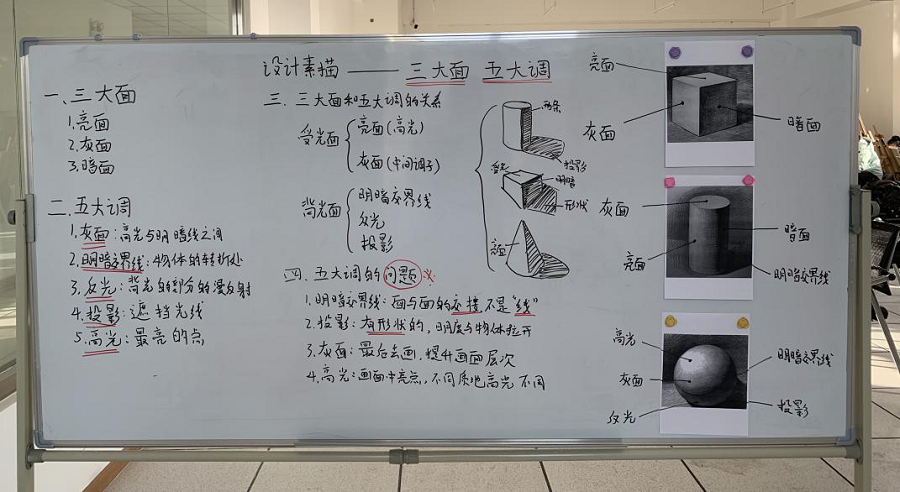 设计素描——三大面 五大调
一、三大面
1.亮面
2.灰面
3.暗面
二、五大调
1.灰面:高光与明暗线之间
2.明暗交界线:物体的转折处
3.反光:背光的部分的漫反射
4.投影:遮挡光线
5.高光:最亮的点
三、三大面和五大调的关系
受光面
亮面(高光)
灰面(中间调子)
背光面
明暗交界线
反光
投影
投影
明暗
形状
四、五大调的问题
1.明暗交界线:面与面的交接,不是“线”
2.投影:有形状的,明度与物体拉开
3.灰面:最后去画,提升画面层次
4.高光:画面中亮点,不同质地高光不同
亮面
灰面
暗面
灰面
亮面
暗面
明暗交界线
高光
灰面
反光
明暗交界线
投影